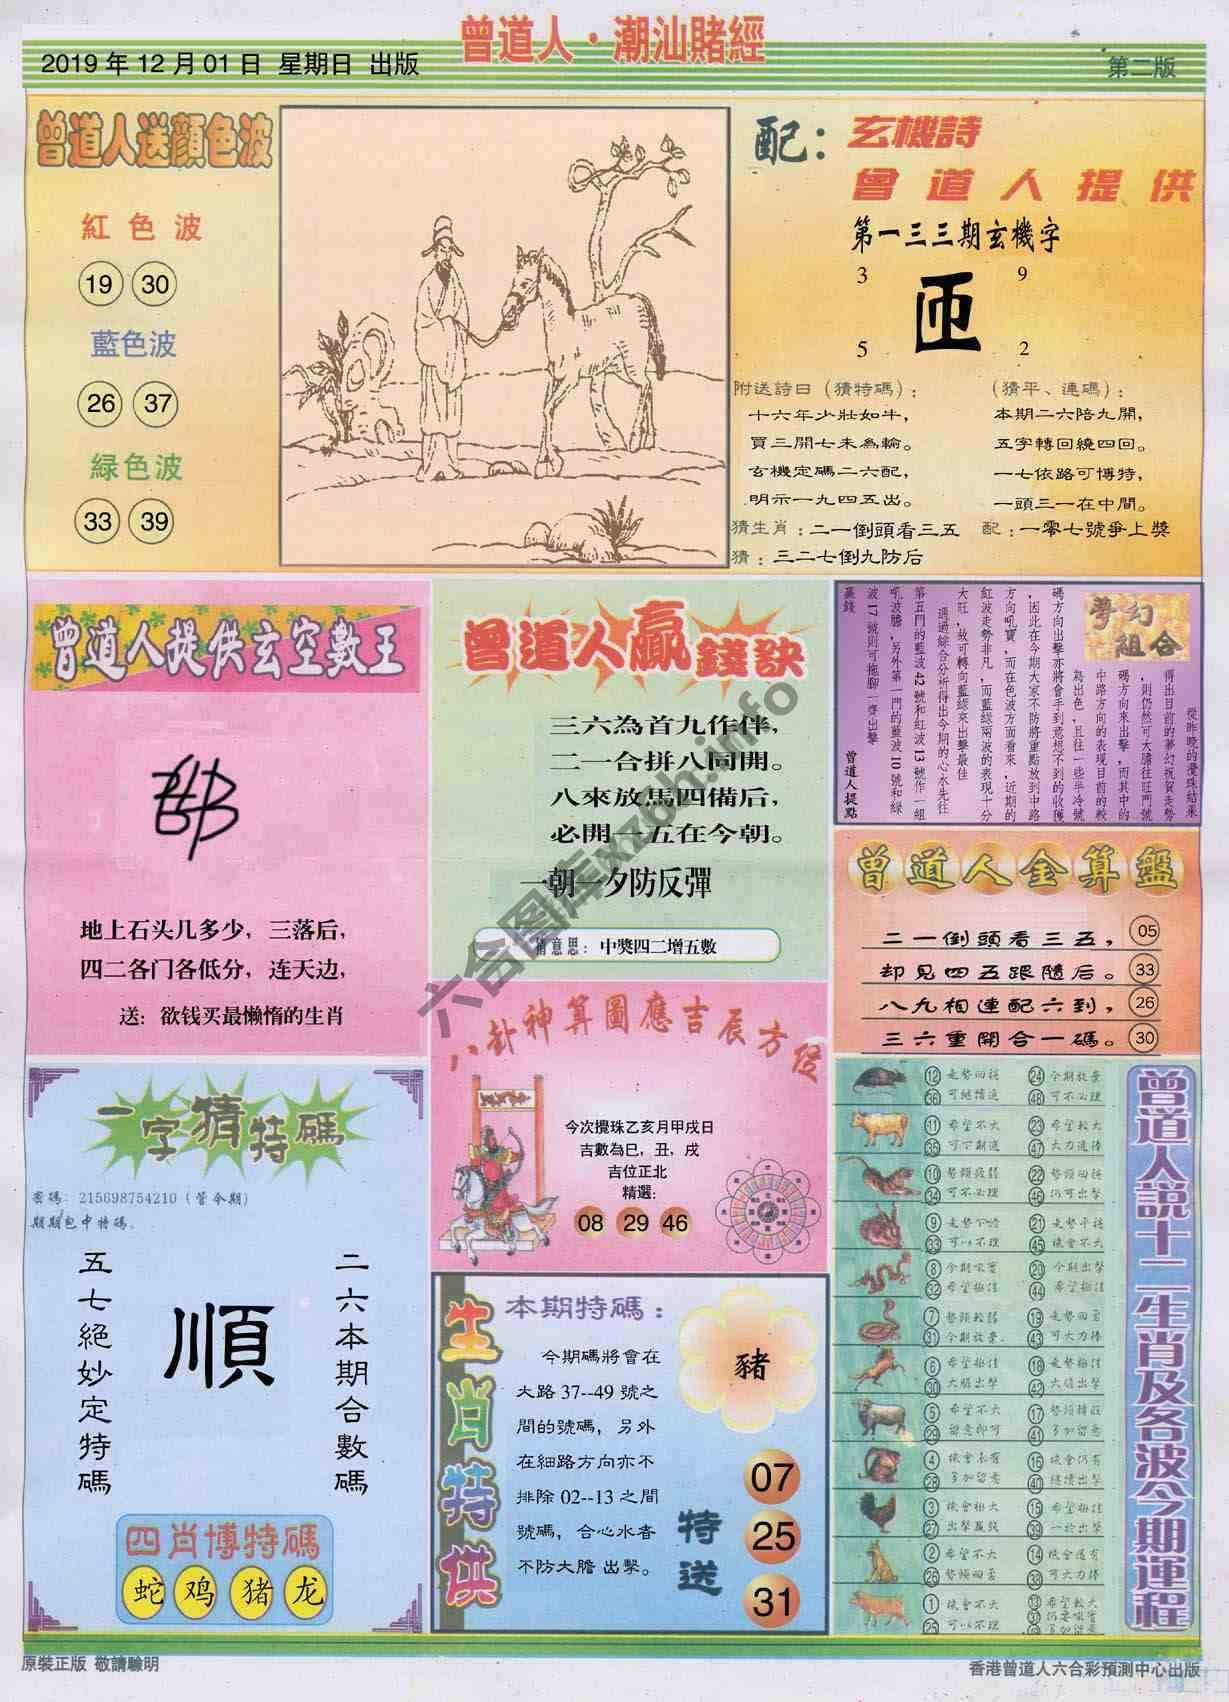 曾道人·潮汕賭經
2019年12月01日 星期日 出版
第二版
曾道人送顏色波
紅色波
19 30
藍色波
26 37
緑色波
33 39
配：玄機詩
曾道人提供
第一三三期玄機字
3 9
匝
5 2
附送詩曰（猜特碼）：
十六年少壯如牛，
買三開七未為輪。
玄機定碼二六配，
明示一九四五出。
猜生肖：二一倒頭看三五
猜：三二七倒九防后
（猜平、連碼）：
本期二六陪九開，
五字轉回繞四回。
一七依路可博特，
一頭三一在中間。
配：一零七號爭上獎
曾道人提供玄空數王
地上石头几多少，三落后，
四二各门各低分，连天边，
送：欲钱买最懒惰的生肖
曾道人贏錢訣
三六為首九作伴，
二一合拼八同開。
八來放馬四備后，
必開一五在今朝。
一朝一夕防反彈
猜意思：中獎四二增五數
夢幻組合
從昨晚的攪珠結果
得出目前的夢幻祝賀走勢
，則仍然可大膽往旺門號
碼方向來出擊，而其中的
中路方向的表現目前的較
為出色，且往一些半冷號
碼方向出擊亦將會手到意想不到的收穫
，因此在今期大家不防將重點放到中路
方向吼寶，而在色波方面看來，近期的
紅波走勢非凡，而藍綠兩波的表現十分
大旺，故可轉向藍綠來出擊最佳
通過綜合分析得出今期的心水先往
第五門的藍波42號和紅波13號作一組
吼波膽，另外第一門的藍波10號和綠
波17號則可拖腳一齊出擊
贏錢
曾道人提點
曾道人金算盤
二一倒頭看三五， 05
却見四五跟隨后。 33
八九相連配六到， 26
三六重開合一碼。 30
八卦神算圖應吉辰方位
今次攪珠乙亥月甲戌日
吉數為巳，丑，戌
吉位正北
精選：
08 29 46
一字猜特碼
密碼：215698754210（管今期）
期期包中特碼。
五七絕妙定特碼
順
二六本期合數碼
四肖博特碼
蛇 鸡 猪 龙
生肖特供
本期特碼：
今期碼將會在
大路37--49號之
間的號碼，另外
在細路方向亦不
排除02--13之間
號碼，合心水者
不防大膽出擊。
豬
特送
07
25
31
曾道人說十二生肖及各波今期運程
12 走勢回穩 24 今期放棄
36 可繼續追 48 可不必理
11 希望不大 23 希望較大
35 可下期追 47 大力追捧
10 勢頗疲弱 22 勢頭回穩
34 可不必理 46 仍可出擊
9 走勢下滑 21 走勢平穩
33 可以不理 45 機會不大
8 今期吸寶 20 今期出擊
32 希望極佳 44 希望極佳
7 勢頭較弱 19 走勢回至
31 今期放棄 43 可大力捧
6 希望極佳 18 走勢極佳
30 大膽出擊 42 大膽出擊
5 希望不大 17 勢頭轉旺
29 留意即可 41 多加留意
4 機會未有 16 機會仍有
28 多加留意 40 繼續出擊
3 機會極大 15 希望極佳
27 出擊贏錢 39 一於出擊
2 希望不大 14 機會還有
26 勢頭回至 38 可大力捧
1 機會不大 13 希望較大
25 可以不理 37 仍要吸寶
多加留意
六合图库xzbh.info
原裝正版 敬請驗明
香港曾道人六合彩預測中心出版